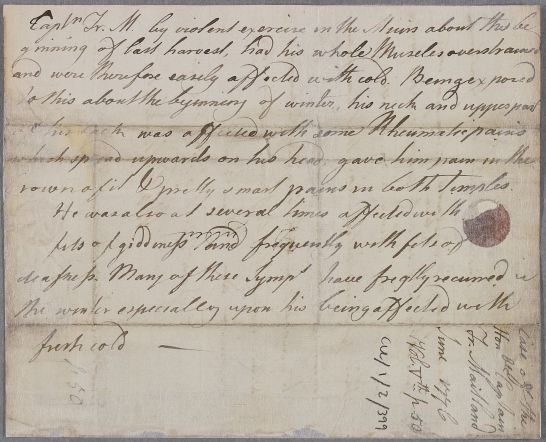 Captn Fr. M. by violent exercise in the Muirs about the be
ginning of last harvest, had his whole Muscles overstrained
and were therefore easily affected with cold. Being exposed
to this about the beginning of winter, his neck and upper part
of his back was affected with some Rheumatic pains
which spread upwards on his head, gave him pain in the
crown of it & pretty smart pains in both Temples.
He was also at several times affected with
fits of giddiness and frequently with fits of
deafness. Many of these sympt have freqtly recurred in
the winter especially upon his being affected with
fresh cold
Case of the
Honble Captain
Fr. Maitland
June 1776
Vol 8th p. 50
Cul/1/2/399
p 50